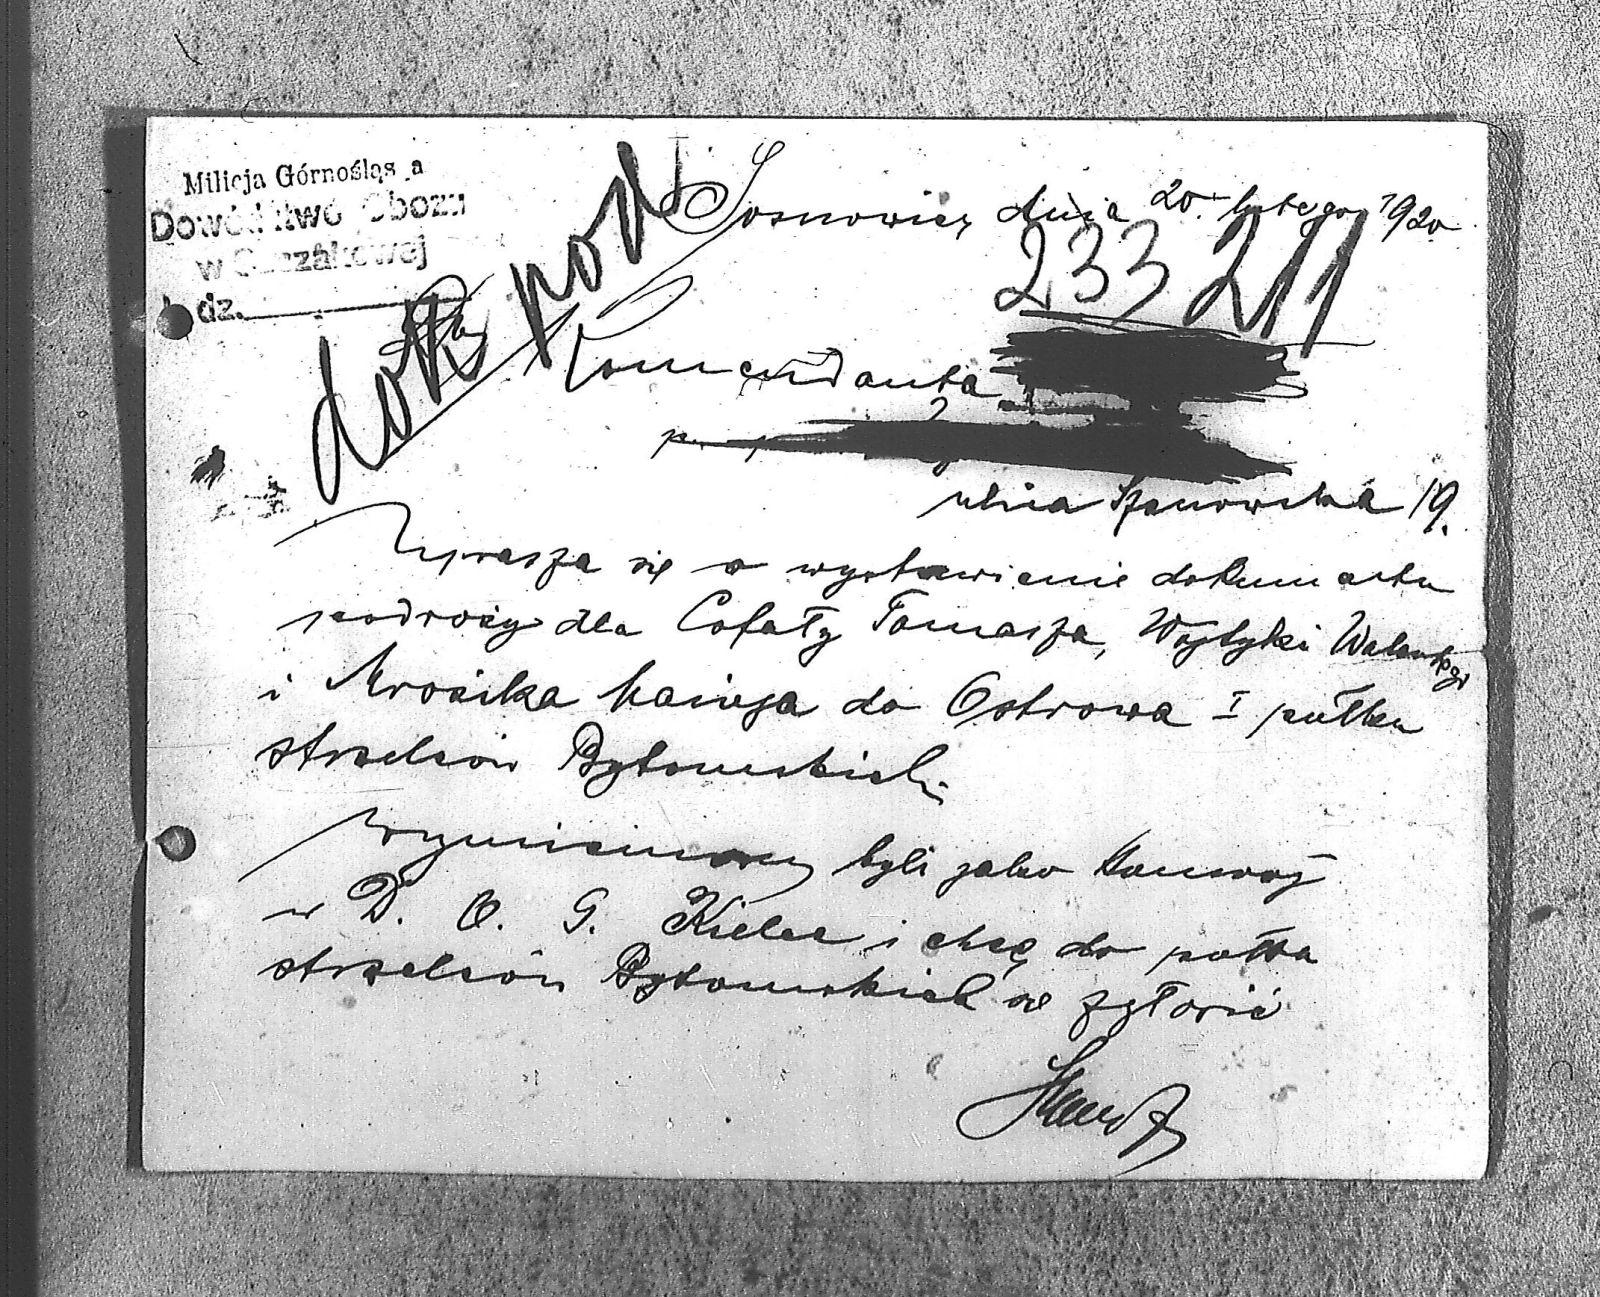 Milicja Górnośląs a
Dowództwo Obozu
w Szczakowej
L dz.
dok pod
Sosnowiec, dnia 20. lutego 1920
233 211
Komendanta
ulica 19.
Uprasza się o wystawienie dokumentu
podroży dla Cofały Tomasza, Wojtyki Walentego
i Mrosika do Ostrowa I pułku
strzelców Bytomskich.
Wymienieni byli jako Konwój
w D. O. G. Kielce i chcą do pułku
strzelców Bytomskich się zgłosić